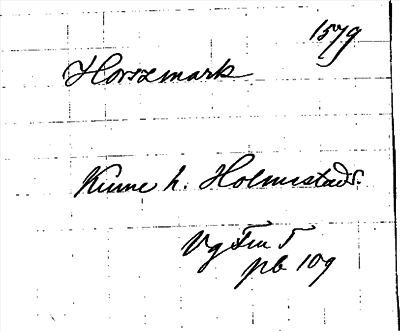 1579
Horszmark
Kinne h. Holmestads.
Vg Fm 5
pb 109